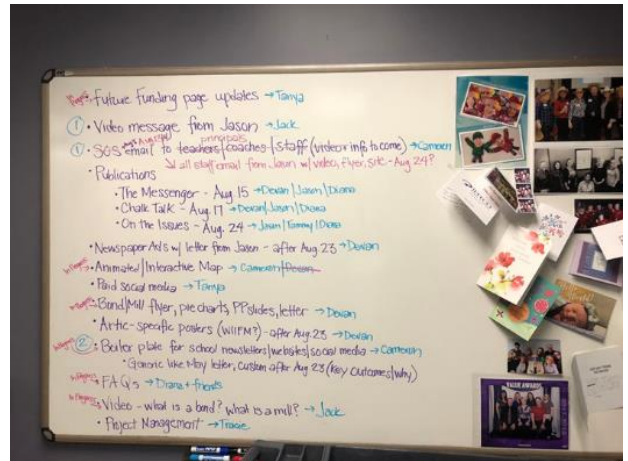 In Progress → • Future Funding page updates → Tanya
① • Video message from Jason → Jack
Aug 15/24
principals
① • SOS email to teachers/coaches/staff (video or info to come) → Cameron
↳ all staff email from Jason w/ video, flyer, site - Aug 24?
• Publications
• The Messenger - Aug. 15 → Devan/Jason/Diana
• Chalk Talk - Aug. 17 → Devan/Jason/Diana
• On the Issues - Aug. 24 → Jason/Tammy/Diana
• Newspaper Ad's w/ letter from Jason - after Aug. 23 → Devan
In Progress → • Animated/Interactive Map → Cameron/Devan
• Paid social media → Tanya
In Progress → • Bond/Mill flyer, pie charts, PP slides, letter → Devan
• Artic-specific posters (WIIFM?) - after Aug. 23 → Devan
In Progress → ② • Boiler plate for school newsletters/websites/social media → Cameron
• Generic like May letter, custom after Aug 23 (key outcomes/why)
In Progress → • FAQ's → Diana + friends
In Progress → • Video - what is a bond? what is a mill? → Jack
• Project Management → Tracie
VALOR AWARDS